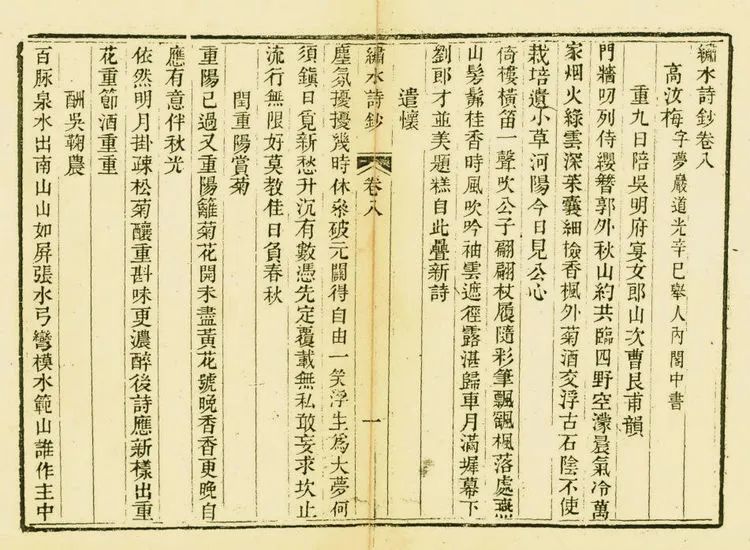 繡水詩鈔卷八
高汝梅字夢巖道光辛巳舉人內閣中書
重九日陪吳明府宴女郎山次曹艮甫韻
門牆叨列侍纓簪郭外秋山約共臨四野空濛晨氣冷萬
家烟火綠雲深茱囊細撿香楓外菊酒交浮古石陰不使
栽培遺小草河陽今日見公心
倚樓橫笛一聲吹公子翩翩杖履隨彩筆飄飄楓落處燕
山髣髴桂香時風吹吟袖雲遮徑露湛歸車月滿墀幕下
劉郎才並美題糕自此疊新詩
遣懷
繡水詩鈔 卷八 一
塵氛擾擾幾時休叅破元關得自由一笑浮生為大夢何
須鎮日覓新愁升沉有數憑先定覆載無私敢妄求坎止
流行無限好莫教佳日負春秋
閏重陽賞菊
重陽已過又重陽籬菊花開未盡黃花號晚香香更晚自
應有意伴秋光
依然明月掛疎松菊釀重斟味更濃醉後詩應新樣出重
花重節酒重重
酬吳鞠農
百脉泉水出南山山如屏張水弓彎模水範山誰作主中